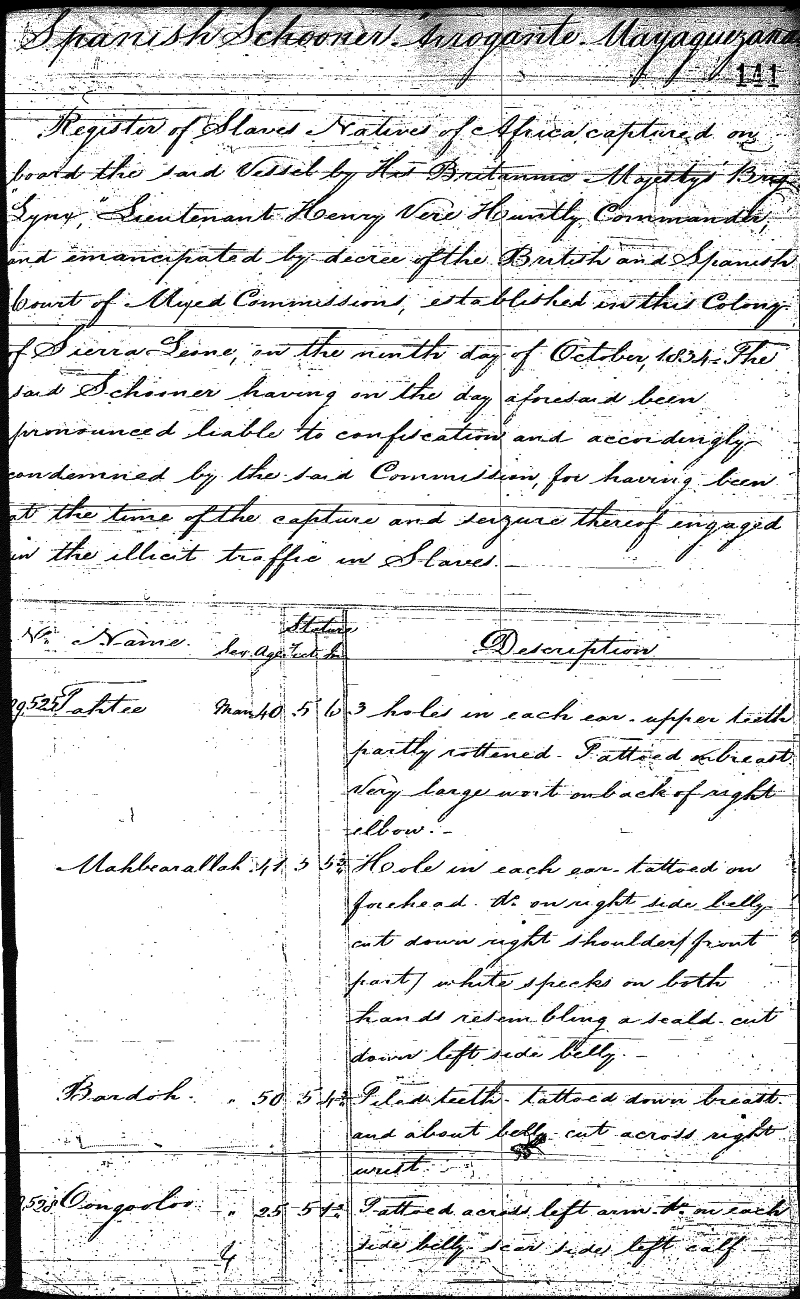 Spanish Schooner. Arrogante. Mayaguezana
141
Register of Slaves Natives of Africa captured on
board the said Vessel by His Britannic Majestys' Brig
"Lynx," Lieutenant Henry Vere Huntly, Commander,
and emancipated by decree of the British and Spanish
Court of Mixed Commissions, established in this Colony
of Sierra-Leone, on the ninth day of October, 1834. The
said Schooner having on the day aforesaid been
pronounced liable to confiscation and accordingly
condemned by the said Commission, for having been
at the time of the capture and seizure thereof engaged
in the illicit traffic in Slaves. —
No. Name. Sex Age Stature Feet In Description
29,525 Tahtee Man 40 5 6 3 holes in each ear - upper teeth
partly rottened - Tattoed on breast
Very large wort on back of right
elbow. —
Mahbearallah 41 5 5 Hole in each ear - tattoed on
forehead. Do. on right side belly
cut down right shoulder/front
part/ white specks on both
hands resembling a scald. cut
down left side belly. —
Bardoh. " 50 5 4 Filed teeth - tattoed down breast.
and about belly cut across right
wrist.
29,528 Congooloo " 25 5 Tattoed across left arm. Do. on each
side belly. scar side left calf —